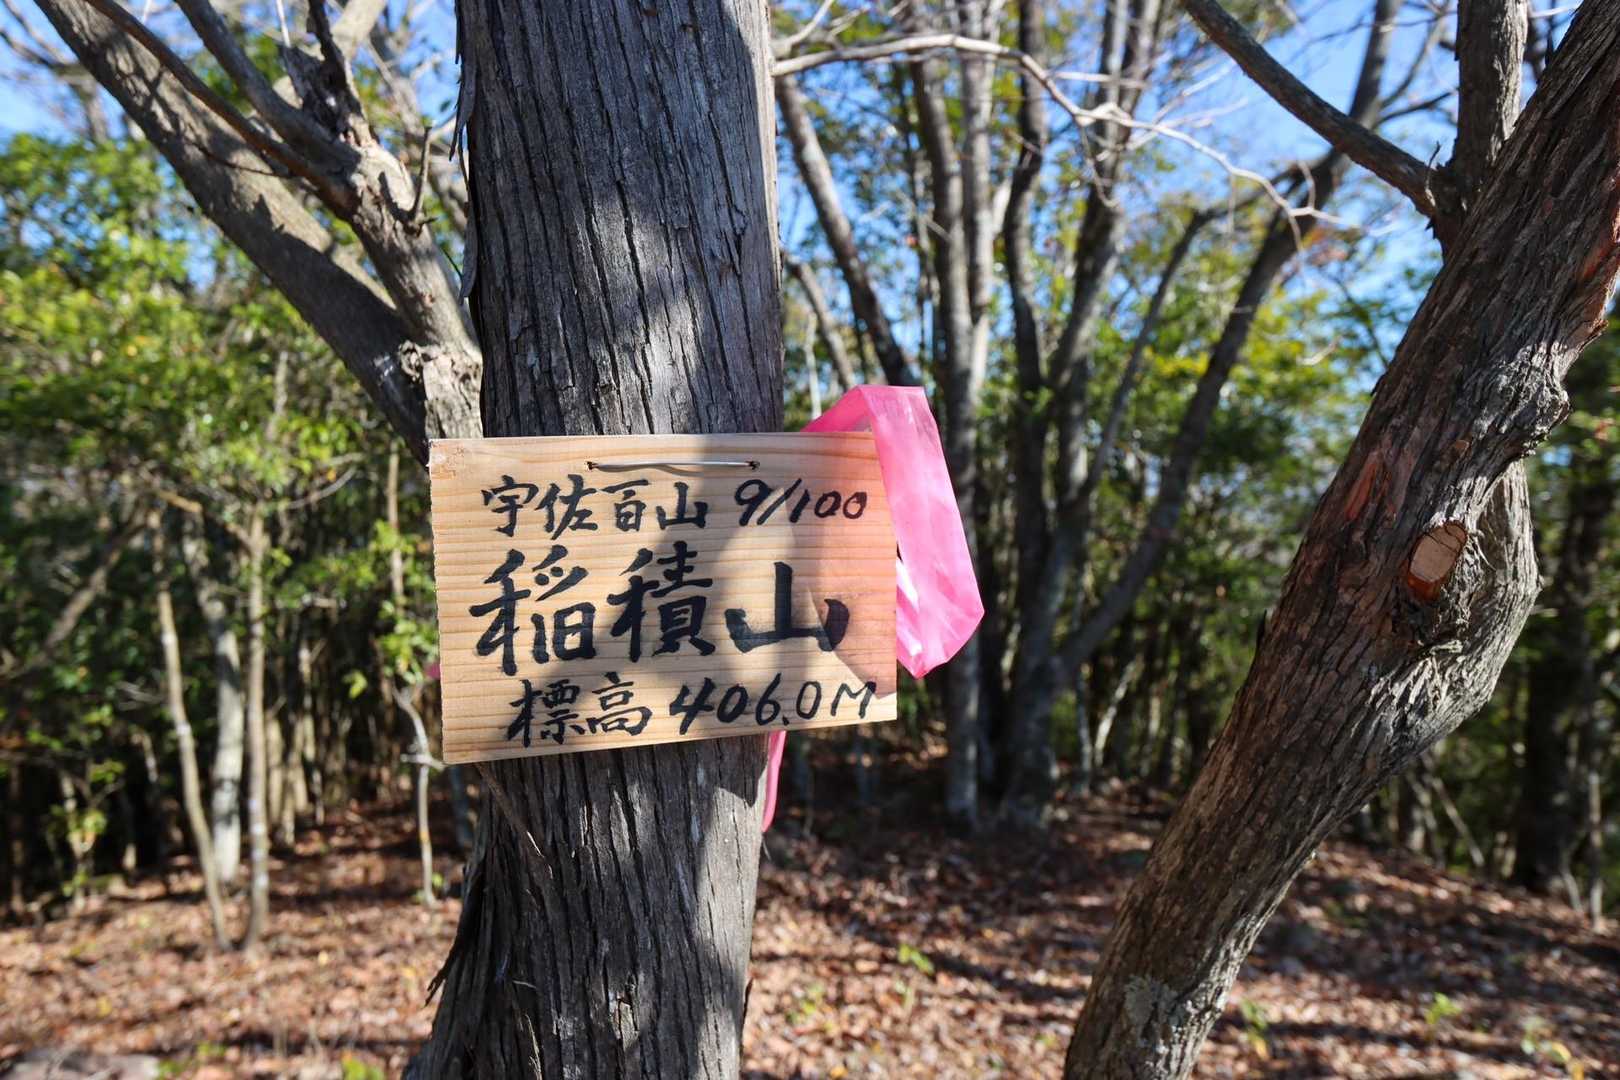 宇佐百山 9/100
稲積山
標高 406.0M